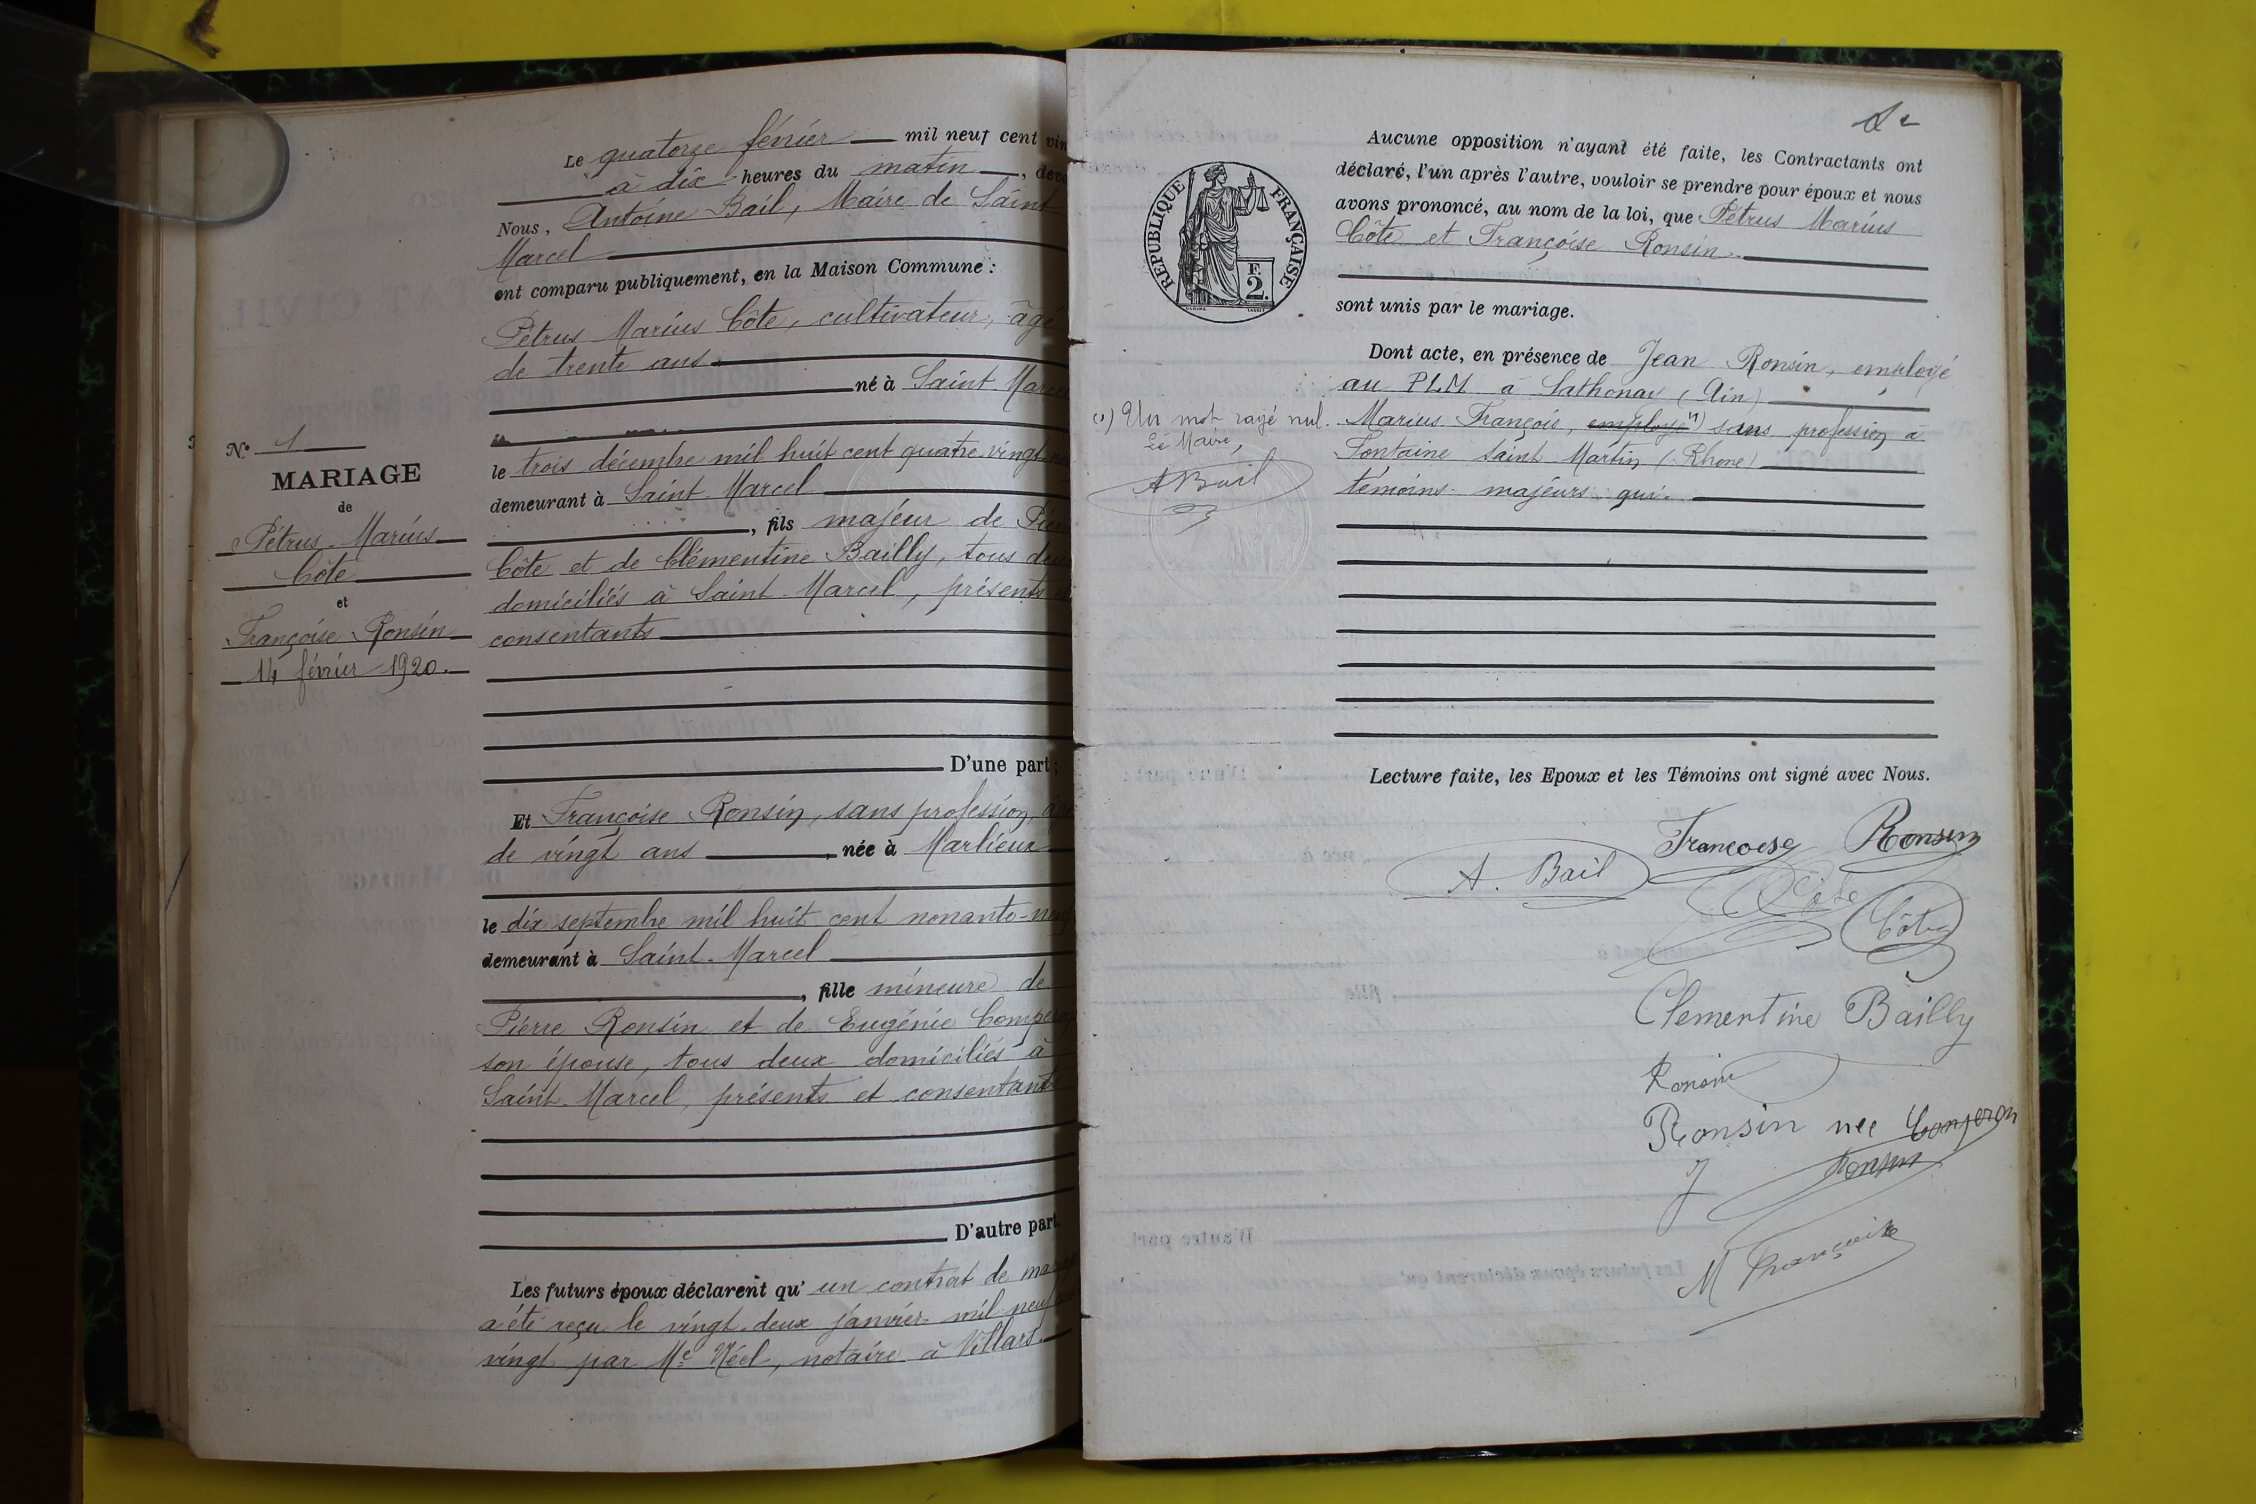 N° 1
MARIAGE
de
Pétrus Marius
Côte
et
Françoise Ronsin
14 février 1920.
Le quatorze février mil neuf cent vin
à dix heures du matin, dev
Nous, Antoine Bail, Maire de Saint
Marcel
ont comparu publiquement, en la Maison Commune :
Pétrus Marius Côte, cultivateur, âgé
de trente ans
né à Saint Marcel
le trois décembre mil huit cent quatre vingt
demeurant à Saint Marcel
, fils majeur de Pier
Côte et de Clémentine Bailly, tous deux
domiciliés à Saint Marcel, présents
consentants
D'une part ;
Et Françoise Ronsin, sans profession, âgée
de vingt ans, née à Marlieux
le dix septembre mil huit cent nonante-neuf
demeurant à Saint Marcel
, fille mineure de
Pierre Ronsin et de Eugénie Comperon
son épouse, tous deux domiciliés à
Saint Marcel, présents et consentants
D'autre part.
Les futurs époux déclarent qu' un contrat de ma
a été reçu le vingt deux janvier mil neuf
vingt par Me Néel, notaire à Villars.
RÉPUBLIQUE FRANÇAISE
F.
2.
Aucune opposition n'ayant été faite, les Contractants ont
déclaré, l'un après l'autre, vouloir se prendre pour époux et nous
avons prononcé, au nom de la loi, que Pétrus Marius
Côte et Françoise Ronsin
sont unis par le mariage.
Dont acte, en présence de Jean Ronsin, employé
au PLM à Sathonay (Ain)
Marius François, employé (1) sans profession à
Fontaine Saint Martin (Rhone)
témoins majeurs qui
(1) Un mot rayé nul.
Le Maire,
A Bail
Lecture faite, les Epoux et les Témoins ont signé avec Nous.
Francoise Ronsin
A. Bail
Côte
Côte
Clementine Bailly
Ronsin
Ronsin nee Comperon
J Ronsin
M François